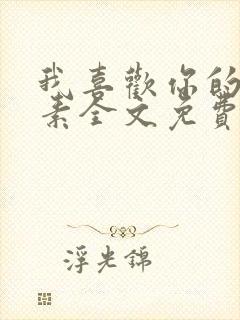 我喜歡你的
素全文免費
浮光錦